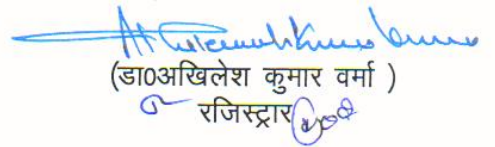 (डा0अखिलेश कुमार वर्मा )
रजिस्ट्रार